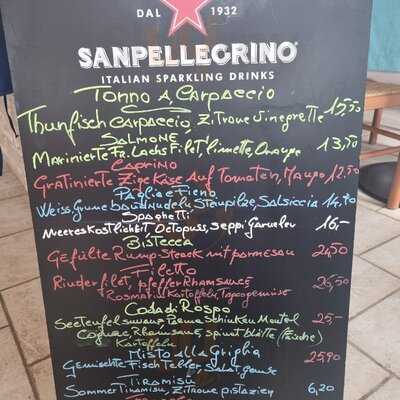 DAL 1932
SANPELLEGRINO
ITALIAN SPARKLING DRINKS
Tonno a Carpaccio
Thunfisch Carpaccio, Zitrone Vinegrette 15,50
Salmone
Marinierte Fr. Lachs Filet, limette, Orange 13,50
Caprino
Gratinierte Zige Käse Auf Tomaten, Mango 12,50
Paglia e Fieno
Weiss, Grüne Bandnudeln Steinpilze, Salsiccia 14,90
Spaghetti
Meeres Köstlichkeit, Octopuss, Seppi, Garnelen 16,-
Bistecca
Gefüllte Rump-Steack mit parmesan 24,50
Filetto
Rinderfilet, pfeffer Rhamsauce 26,50
Rosmarin Kartoffeln, Tagesgemüse
Coda di Rospo
Seeteufel Parma Schinken Mantel 25,-
Cognac, Rhamsauce, spinat blätte (Frische)
Kartoffeln
Misto alla Griglia
Gemischte Fisch Teller Salat 25,90
Tiramisu
Sommer Tiramisu, Zitrone pistazien 6,20